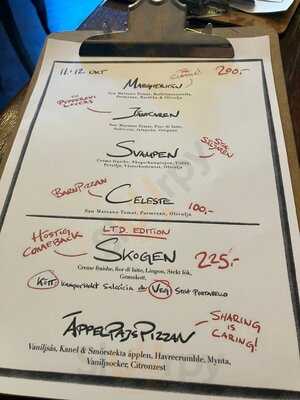 11-12 OKT
THE CLASSIC!
MARGHERITA
200:-
San Marzano Tomat, Buffelmozzarella,
Parmesan, Basilika & Olivolja
FOR PEPPERONI LOVERS
JÄNKAREN
San Marzano Tomat, Fior di latte,
Salsiccia, Jalapeño, Oregano
SVAMPEN
Creme fraiche, Skogschampinjon, Vitlök,
Persilja, Västerbottenost, Olivolja
BARNPIZZAN
CELESTE
100:-
San Marzano Tomat, Parmesan, Olivolja
HÖSTIG COMEBACK
L.T.D. EDITION
SKOGEN
225:-
Creme fraiche, fior di latte, Lingon, Stekt lök,
Grönkål,
KÖTT Salsiccia VEG Stekt PORTABELLO
ÄPPELPAJSPIZZAN
SHARING
IS
CARING!
Vaniljsås, Kanel & Smörstekta äpplen, Havrecrumble, Mynta,
Vaniljsocker, Citronzest